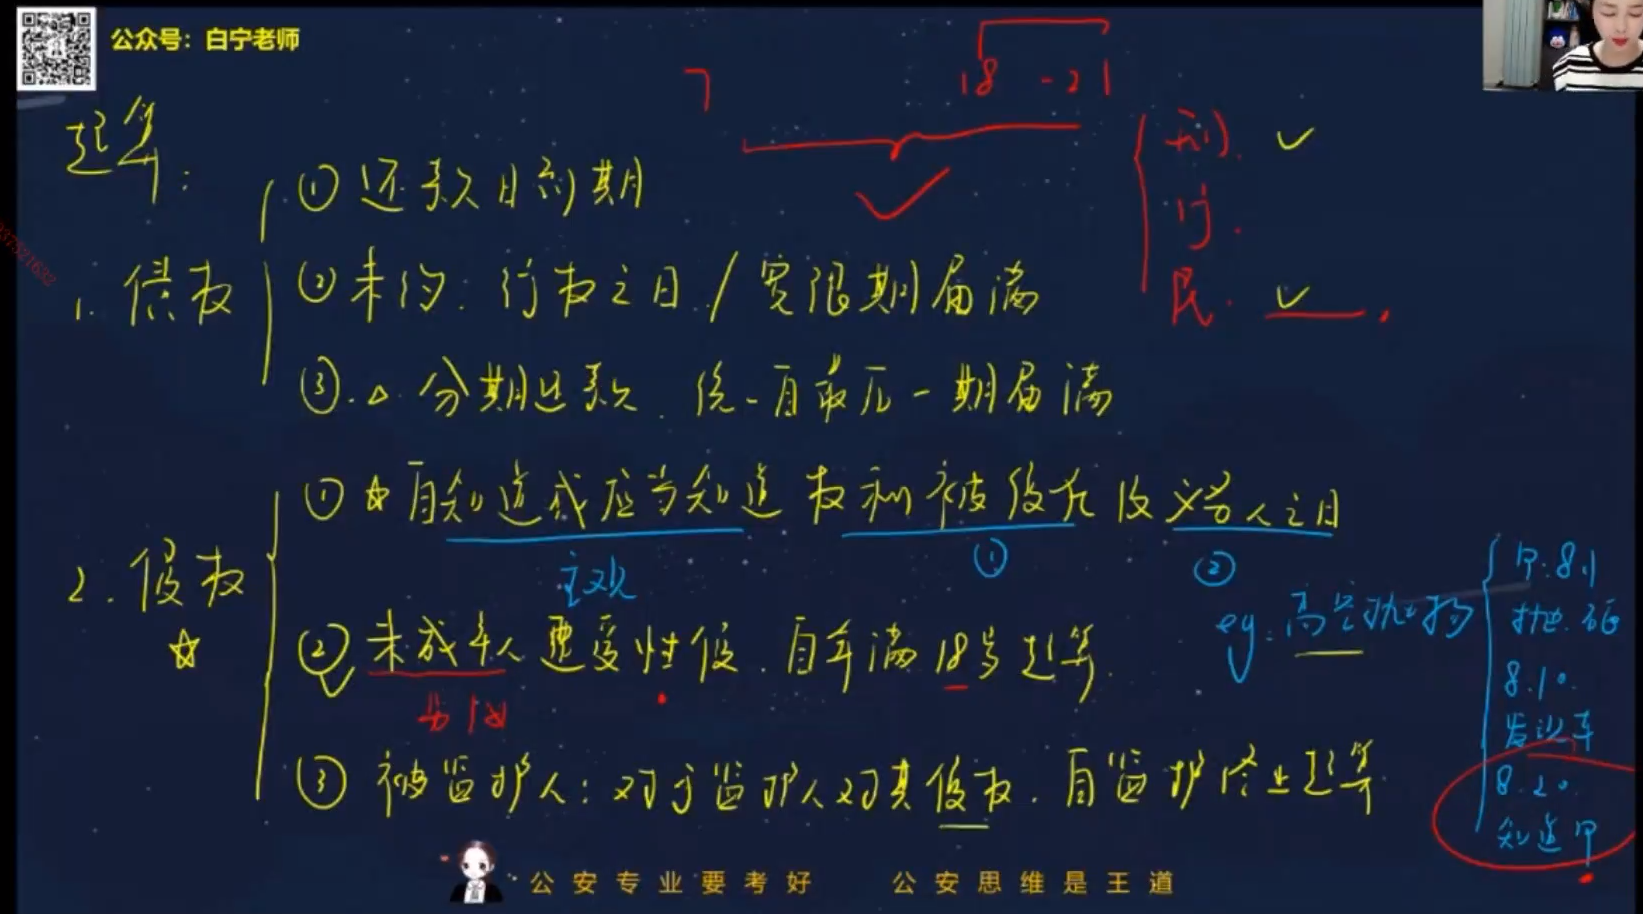 公众号：白宁老师
7 18 - 21
刑.
行.
民.
起算：
1. 债权
① 还款日到期
② 未约：行权之日 / 宽限期届满
③. △ 分期还款. 统一自最后一期届满
2. 侵权
① ☆ 自知道或应当知道 权利被侵犯 及 义务人之日
主观 ① ②
② 未成年人遭受性侵. 自年满18岁起算.
③ 被监护人：对于监护人对其侵权. 自监护终止起算.
eg: 高空抛物
甲: 8.1
抛
8.10.
发现车
8.20.
知道甲
公安专业要考好 公安思维是王道